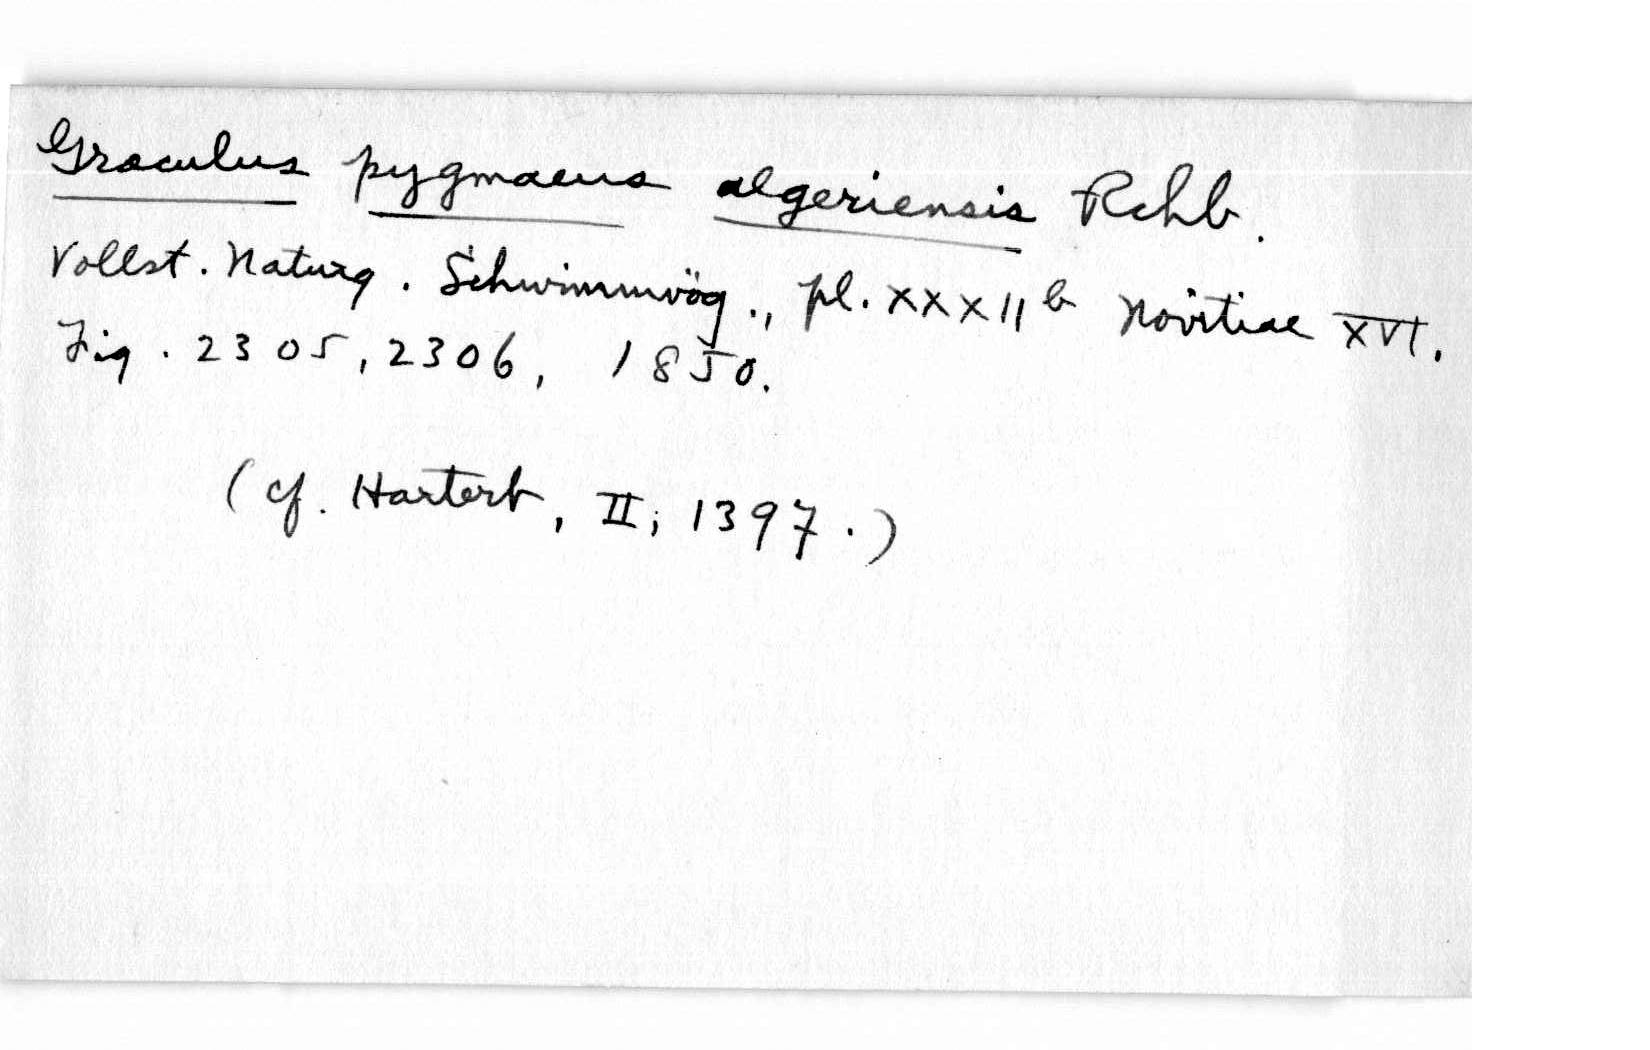 Graculus pygmaeus algeriensis Rchb.
Vollst. Naturg. Schwimmvög., pl. XXXII b Novitiae XVI.
Fig. 2305, 2306, 1850.
(cf. Hartert, II, 1397.)